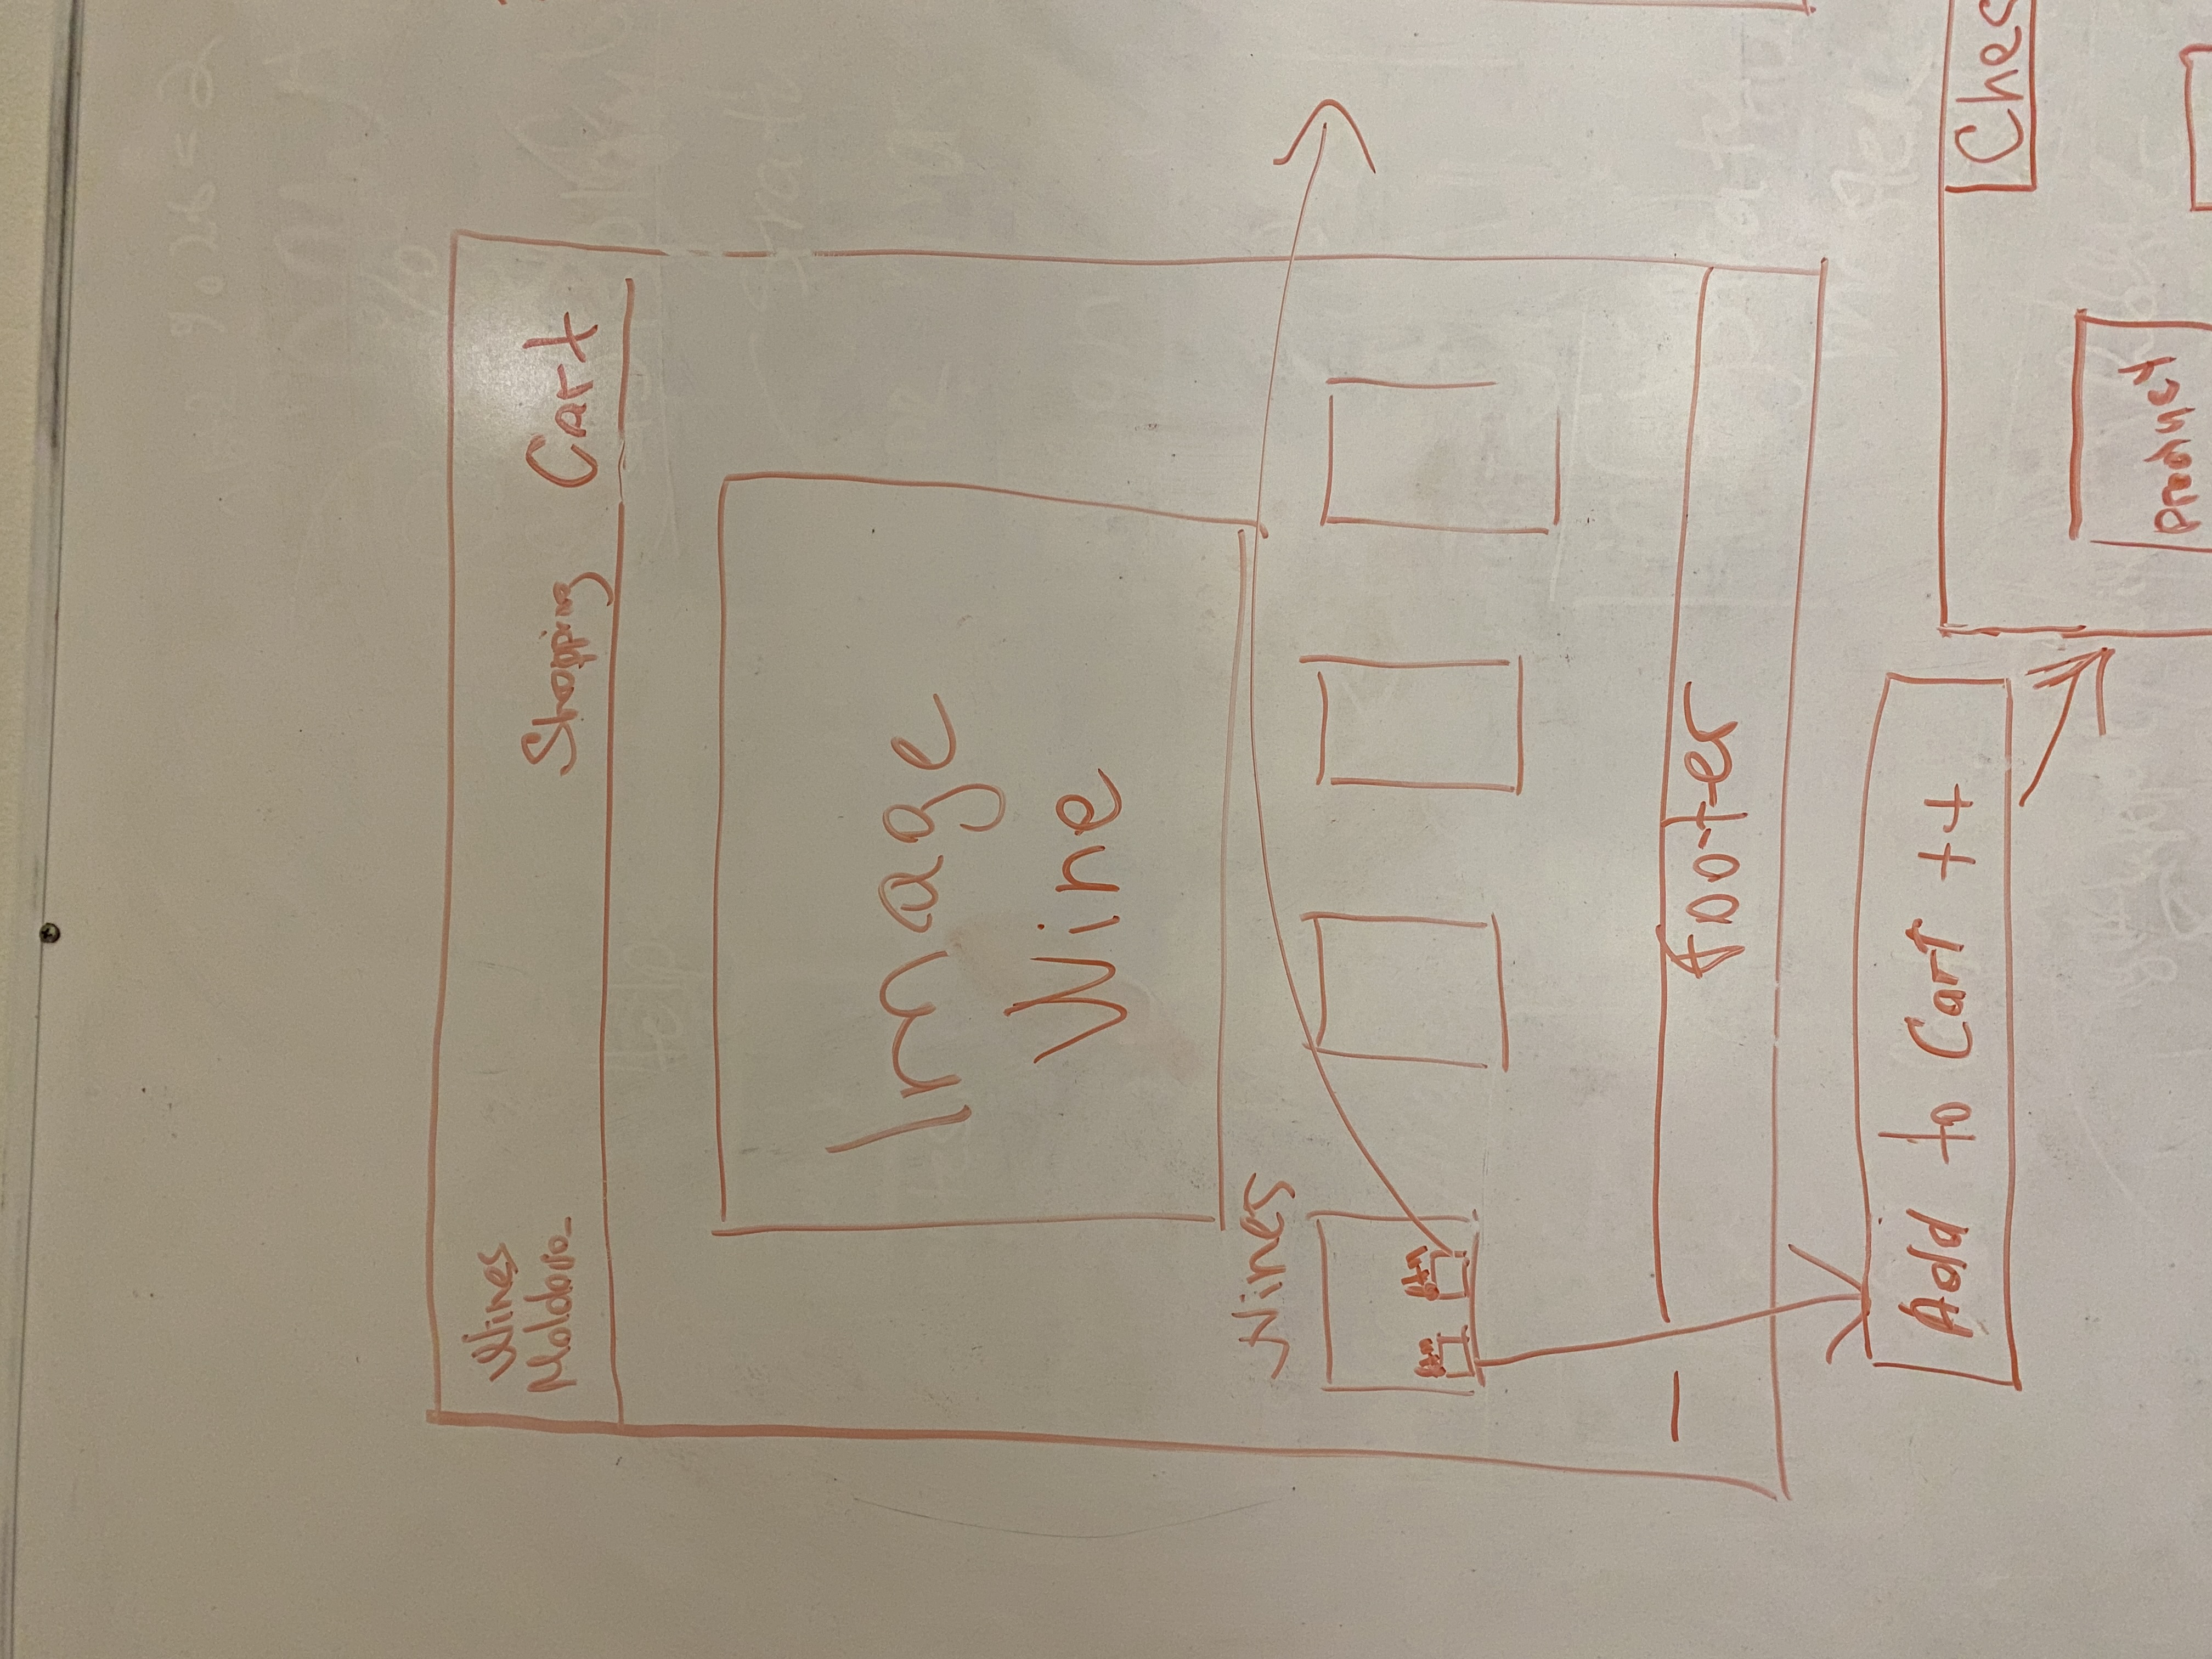 Wines
Moldova
Shopping Cart
Image
Wine
Wines
btn btn
footer
Add to Cart ++
Chec
Product